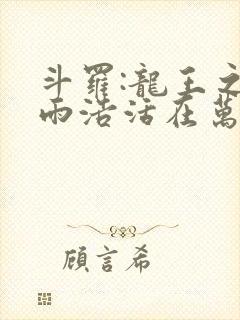 斗羅:龍王之
雨浩活在萬
顧言希